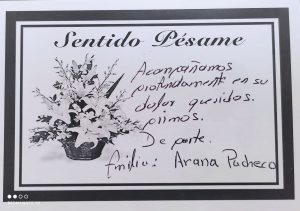 Sentido Pésame
Acompañamos
profundamente en su
dolor queridos.
primos.
De parte.
Familia: Arana Pacheco